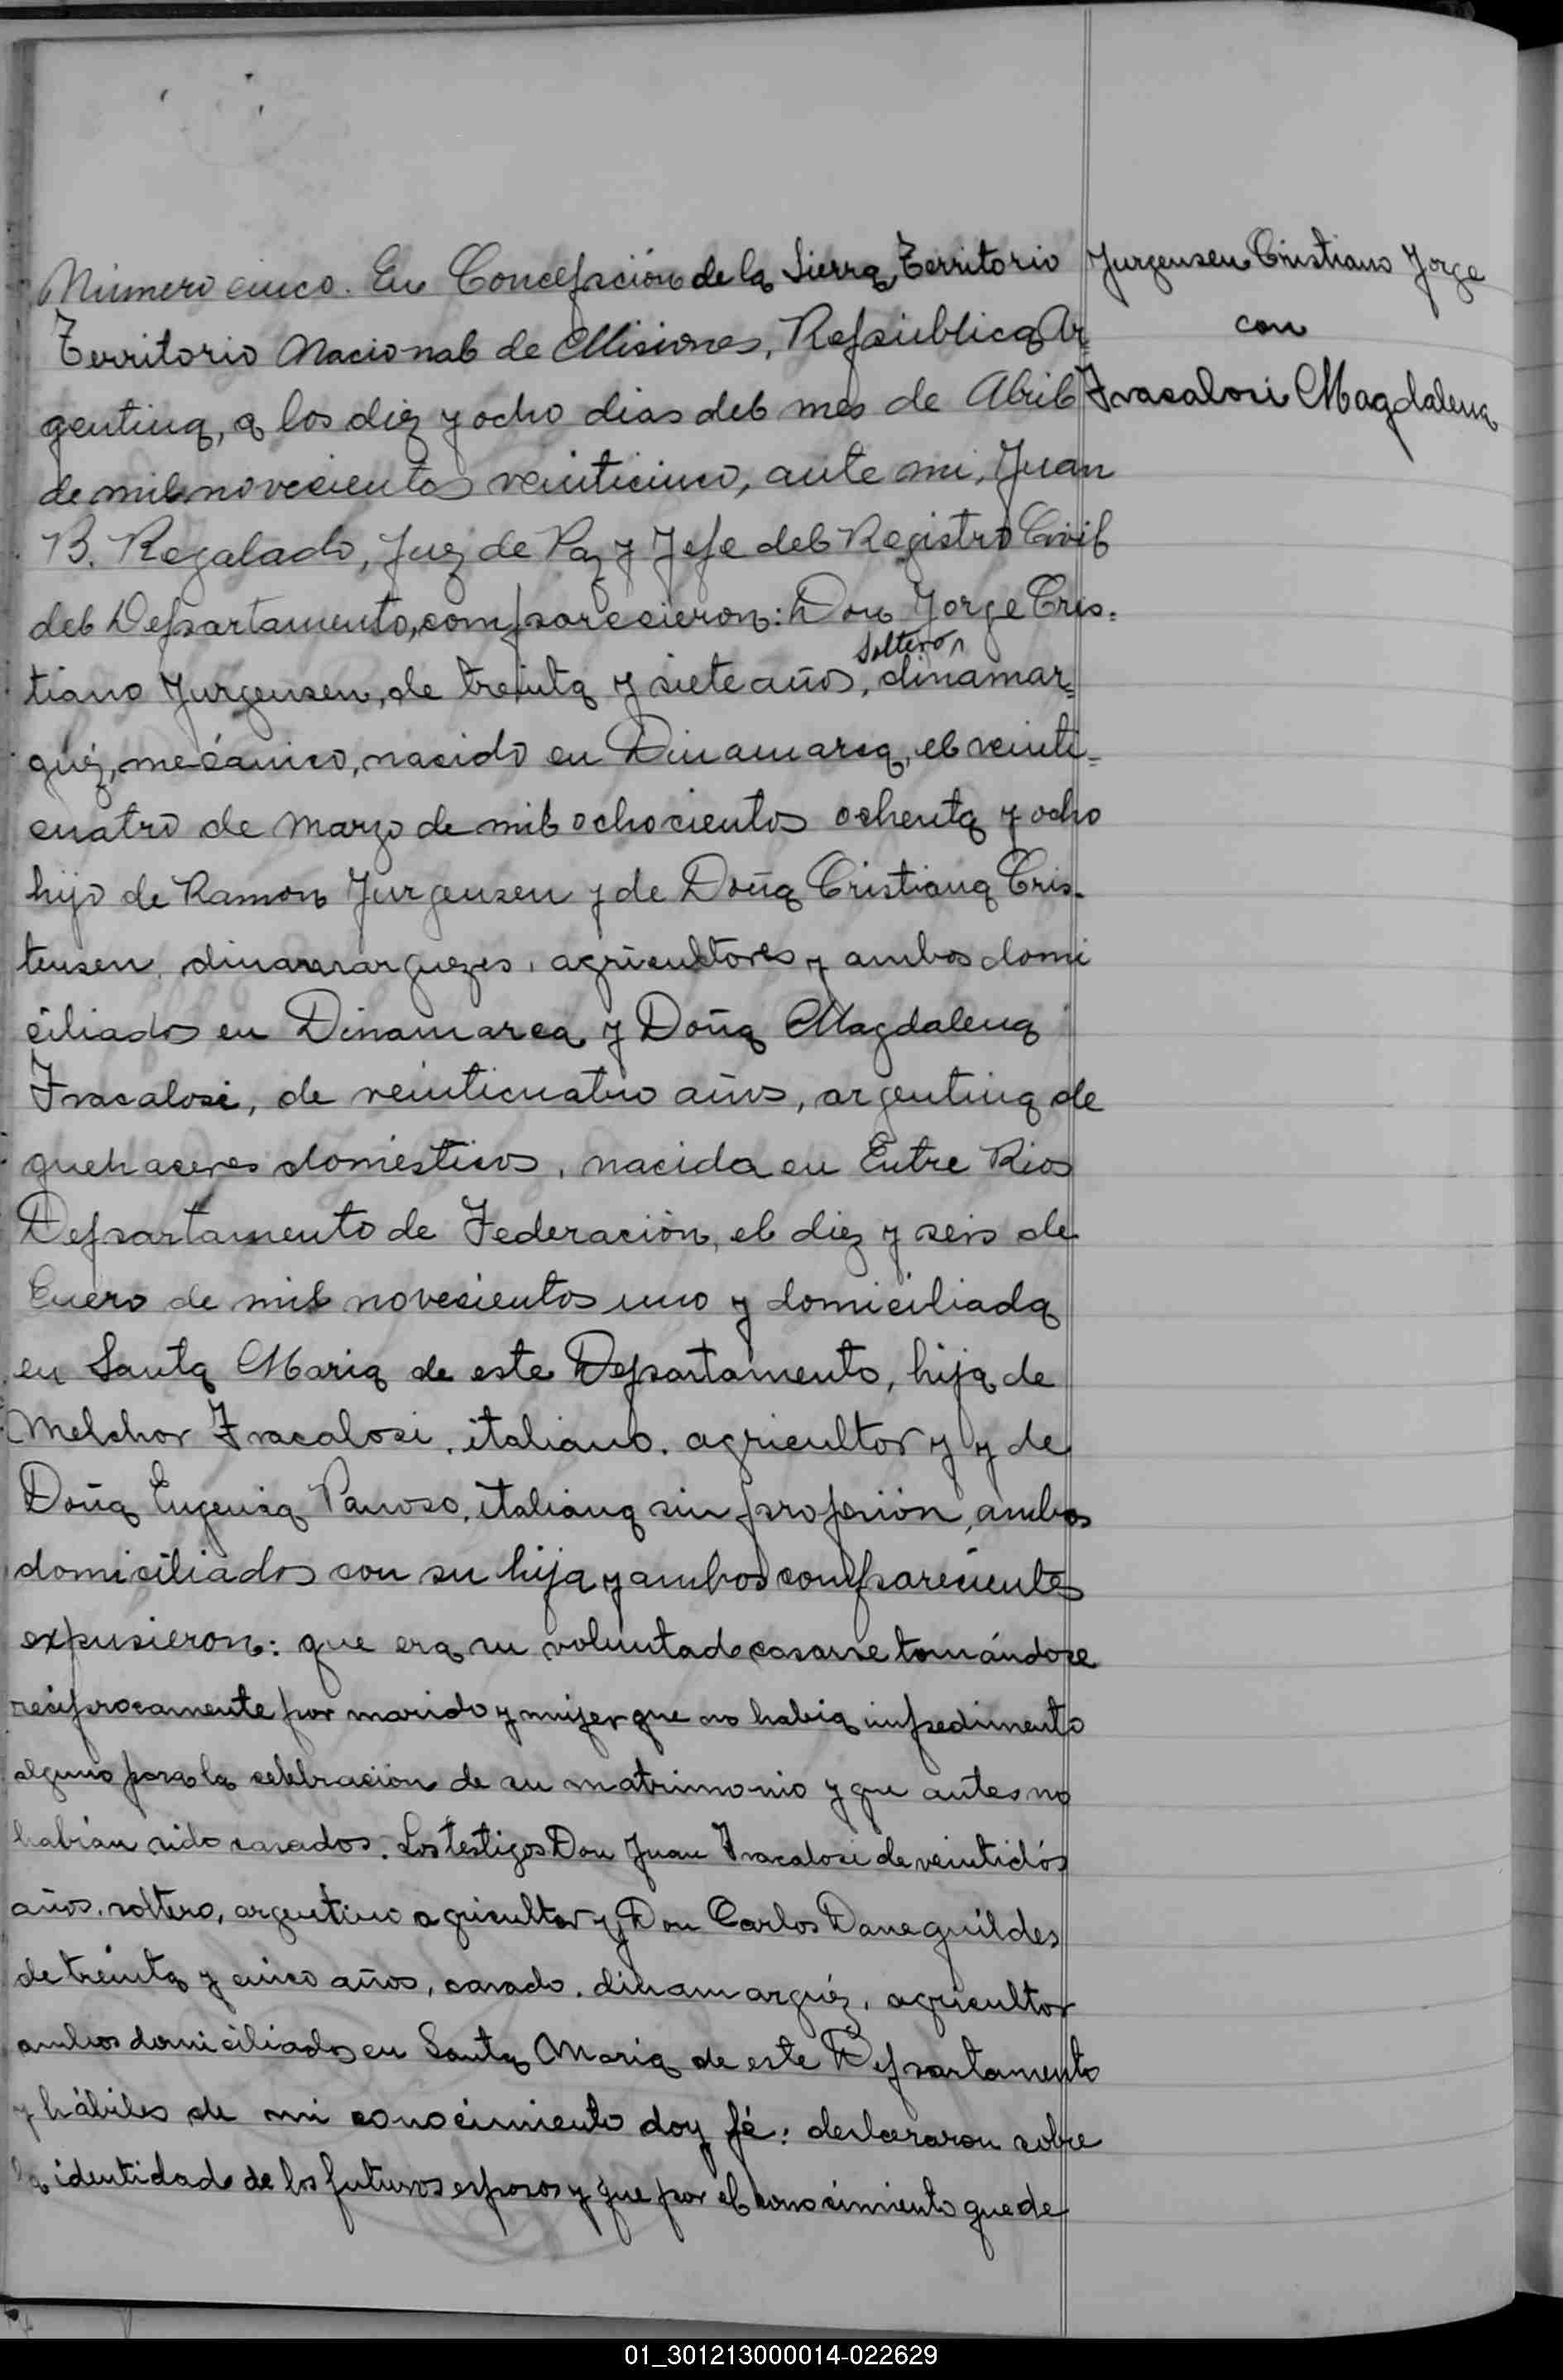 Número cinco. En Concepción de la Sierra, Territorio
Territorio Nacional de Misiones, República Ar=
gentina, a los diez y ocho dias del mes de Abril
de mil novecientos veinticinco, ante mi, Juan
B. Regalado, Juez de Paz y Jefe del Registro Civil
del Departamento, comparecieron: Don Jorge Cris=
soltero
tiano Jurgensen, de treinta y siete años, dinamar=
quéz, mecánico, nacido en Dinamarca, el veinti=
cuatro de marzo de mil ochocientos ochenta y ocho
hijo de Ramon Jurgensen y de Doña Cristiana Cris=
tensen, dinamarquezes, agricultores y ambos domi
ciliados en Dinamarca y Doña Magdalena
Fracalosi, de veinticuatro años, argentina de
quehaceres domésticos, nacida en Entre Rios
Departamento de Federación, el diez y seis de
Enero de mil novecientos uno y domiciliada
en Santa Maria de este Departamento, hija de
Melchor Fracalosi, italiano, agricultor y y de
Doña Eugenia Panoso, italiana sin profesión, ambos
domiciliados con su hija y ambos comparecientes
expusieron: que era su voluntad casarse tomándose
reciprocamente por marido y mujer que no habia impedimento
alguno para la celebración de su matrimonio y que antes no
habian sido casados. Los testigos Don Juan Fracalosi de veintidós
años, soltero, argentino agricultor y Don Carlos Daneguildes
de treinta y cinco años, casado, dinamarquéz, agricultor
ambos domiciliados en Santa Maria de este Departamento
y hábiles de mi conocimiento doy fé: declararon sobre
la identidad de los futuros esposos y que por el conocimiento que de
Jurgensen Cristiano Jorge
con
Fracalosi Magdalena
01_301213000014-022629